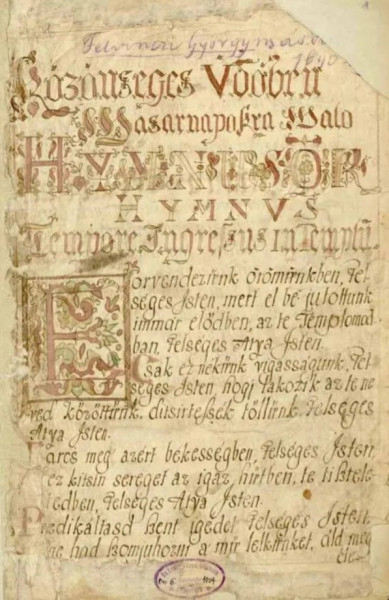 Felvinczi György
Közönseges Üdöben
Vasarnapokra Valo
HYMNUSOK
HYMNVS
Tempore Ingressus in Templũ
Eorvendezünk örömünkben, Fel-
seges Isten, mert el be jutottunk
immár elődben, az te Templomod
ban, Felseges Atya Isten.
Csak ez nekünk vigasságunk, Fel-
seges Isten, hogy lakozik az te ne
ved közöttünk, ditsirtessék töllünk, Felseges
Atya Isten.
meg azert bekessegben, Felseges Isten,
ez kitsin sereget az igaz hütben, te
Felseges Atya Isten.
Predikaltasd szent igedet Felseges Isten
ne had szomjuhozni a mi lelkünket, áld meg